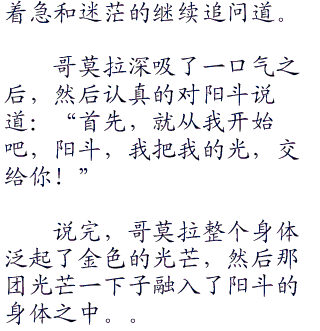 着急和迷茫的继续追问道。
哥莫拉深吸了一口气之
后，然后认真的对阳斗说
道：“首先，就从我开始
吧，阳斗，我把我的光，交
给你！”
说完，哥莫拉整个身体
泛起了金色的光芒，然后那
团光芒一下子融入了阳斗的
身体之中。。